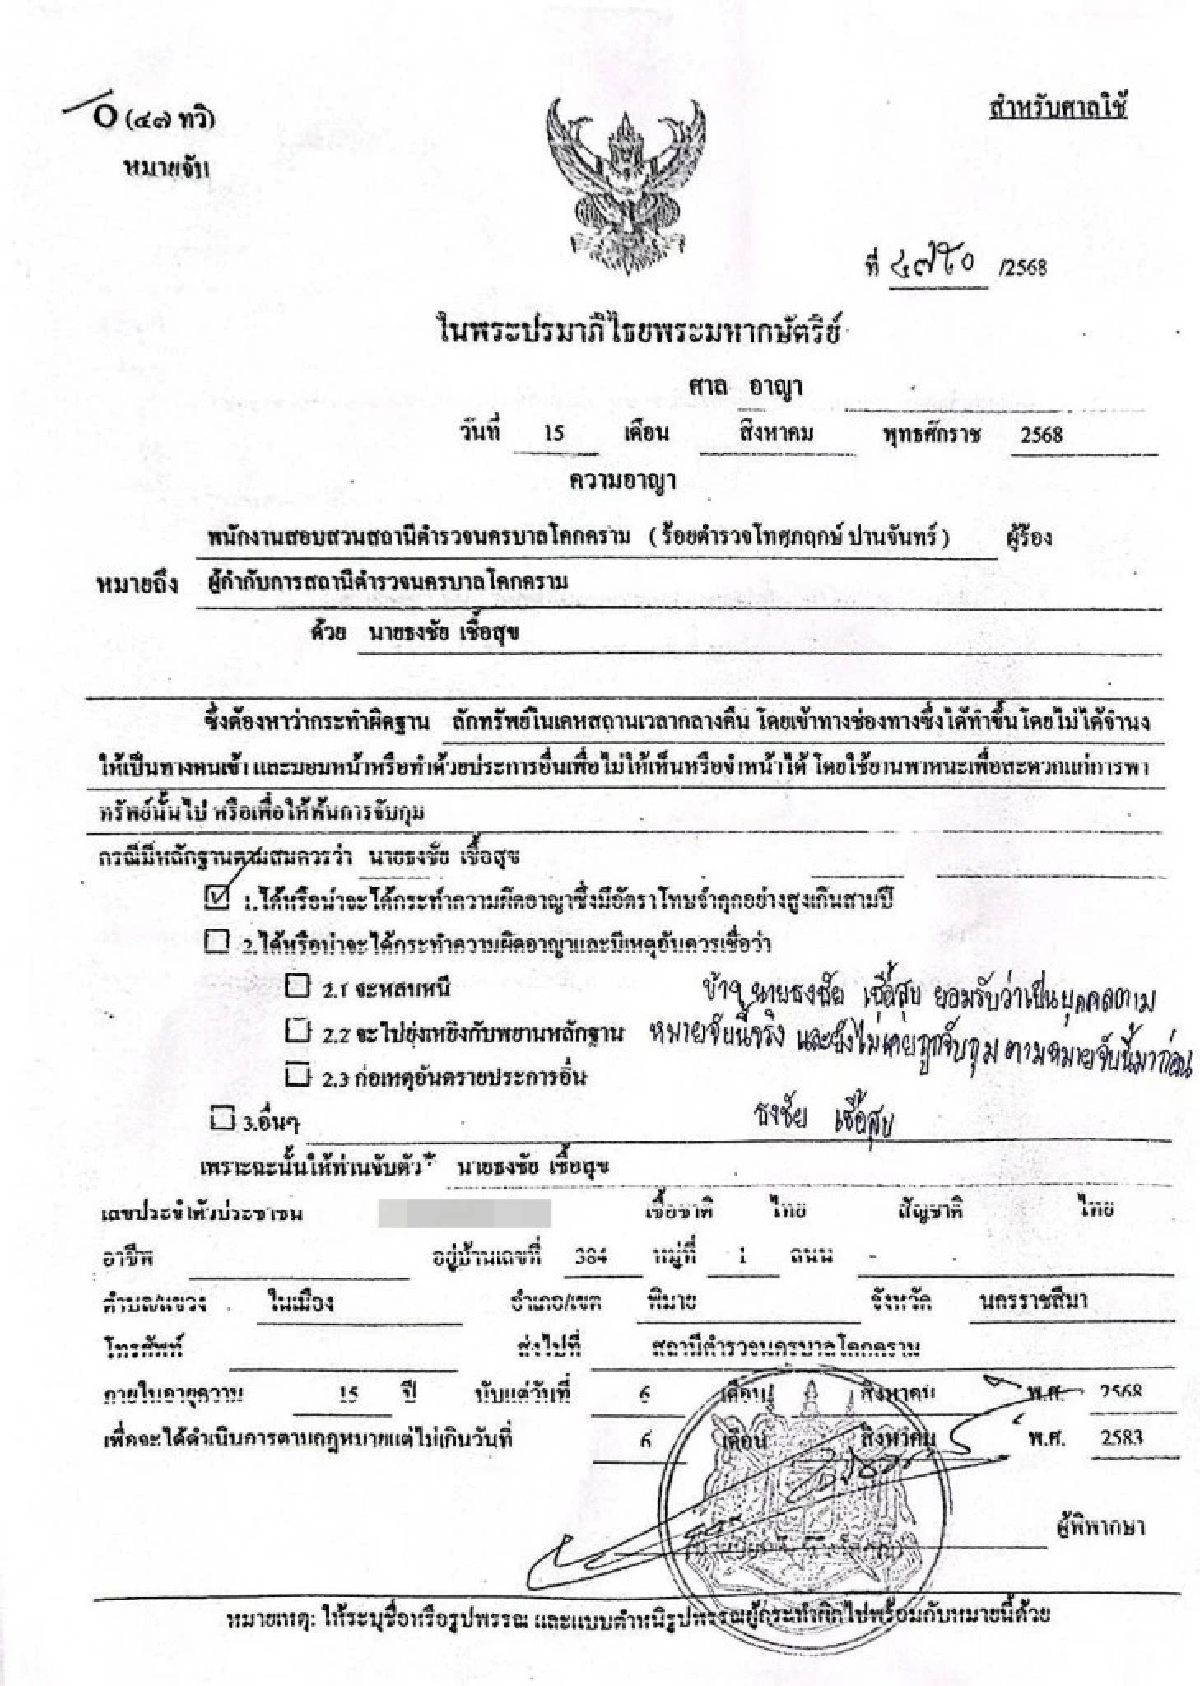 O (๔๗ ทวิ)
หมายจับ
สำหรับศาลใช้
ที่ /2568
ในพระปรมาภิไธยพระมหากษัตริย์
ศาล อาญา
วันที่ 15 เดือน สิงหาคม พุทธศักราช 2568
ความอาญา
พนักงานสอบสวนสถานีตำรวจนครบาลโคกคราม (ร้อยตำรวจโทศุภฤกษ์ ปานจันทร์) ผู้ร้อง
หมายถึง ผู้กำกับการสถานีตำรวจนครบาลโคกคราม
ด้วย นายธงชัย เชื้อสุข
ซึ่งต้องหาว่ากระทำผิดฐาน ลักทรัพย์ในเคหสถานเวลากลางคืน โดยเข้าทางช่องทางซึ่งได้ทำขึ้นโดยไม่ได้จำนง
ให้เป็นทางคนเข้า และมอมหน้าหรือทำด้วยประการอื่นเพื่อไม่ให้เห็นหรือจำหน้าได้ โดยใช้ยานพาหนะเพื่อสะดวกแก่การพา
ทรัพย์นั้นไป หรือเพื่อให้พ้นการจับกุม
กรณีมีหลักฐานตามสมควรว่า นายธงชัย เชื้อสุข
1.ได้หรือน่าจะได้กระทำความผิดอาญาซึ่งมีอัตราโทษจำคุกอย่างสูงเกินสามปี
2.ได้หรือน่าจะได้กระทำความผิดอาญาและมีเหตุอันควรเชื่อว่า
2.1 จะหลบหนี
2.2 จะไปยุ่งเหยิงกับพยานหลักฐาน
2.3 ก่อเหตุอันตรายประการอื่น
3.อื่นๆ
ข้าฯ นายธงชัย เชื้อสุข ยอมรับว่าเป็นบุคคลตาม
หมายจับนี้จริง และยังไม่เคยถูกจับกุม ตามหมายจับนี้มาก่อน
ธงชัย เชื้อสุข
เพราะฉะนั้นให้ท่านจับตัว* นายธงชัย เชื้อสุข
เลขประจำตัวประชาชน เชื้อชาติ ไทย สัญชาติ ไทย
อาชีพ อยู่บ้านเลขที่ 384 หมู่ที่ 1 ถนน -
ตำบล/แขวง ในเมือง อำเภอ/เขต พิมาย จังหวัด นครราชสีมา
โทรศัพท์ ส่งไปที่ สถานีตำรวจนครบาลโคกคราม
ภายในอายุความ 15 ปี นับแต่วันที่ 6 เดือน สิงหาคม พ.ศ. 2568
เพื่อจะได้ดำเนินการตามกฎหมายแต่ไม่เกินวันที่ 6 เดือน สิงหาคม พ.ศ. 2583
ผู้พิพากษา
หมายเหตุ: ให้ระบุชื่อหรือรูปพรรณ และแบบตำหนิรูปพรรณผู้กระทำผิดไปพร้อมกับหมายนี้ด้วย